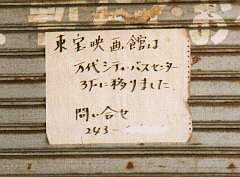 東宝映画館は
万代シティーバスセンター
3Fに移りました
問い合せ
243-